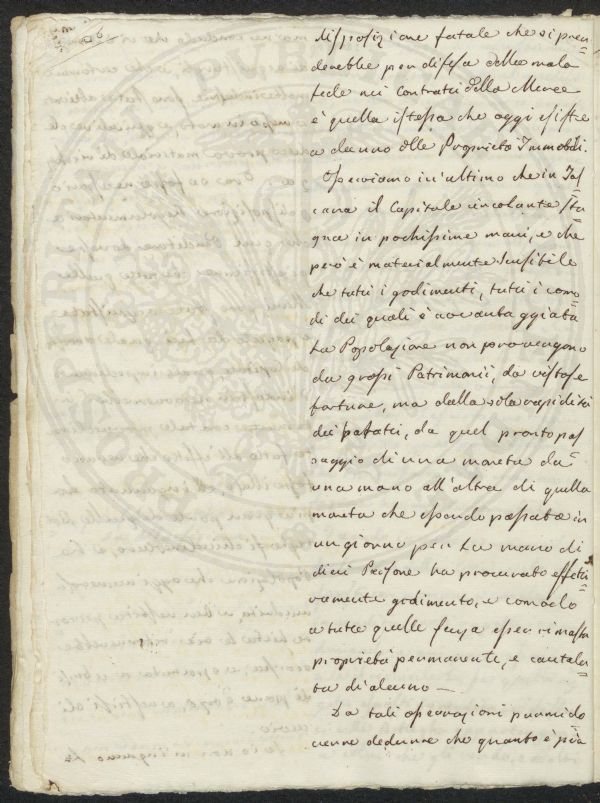 disposizione fatale che si pren=
derebbe per difesa della mala
fede nei Contratti della Merce
è quella istessa che oggi esiste
a danno delle Proprietà Immobili.
Osserviamo in ultimo che in Tos=
cana il Capitale circolante sta=
gna in pochissime mani, e che
però è materialmente sensibile
che tutti i godimenti, tutti i como=
di dei quali è avvantaggiata
la Popolazione non provengono
da grossi Patrimonii, da vistose
fortune, ma dalla sola rapidità
dei da quel pronto pas=
saggio di una moneta da
una mano all'altra di quella
moneta che essendo passata in
un giorno per la mano di
dieci Persone ha procurato effetti=
vamente godimento, e comodo
a tutte quelle senza esser rimasta
proprietà permanente, e cautela=
ta di alcuno —
Da tali osservazioni parmi do=
versene dedurre che quanto è più